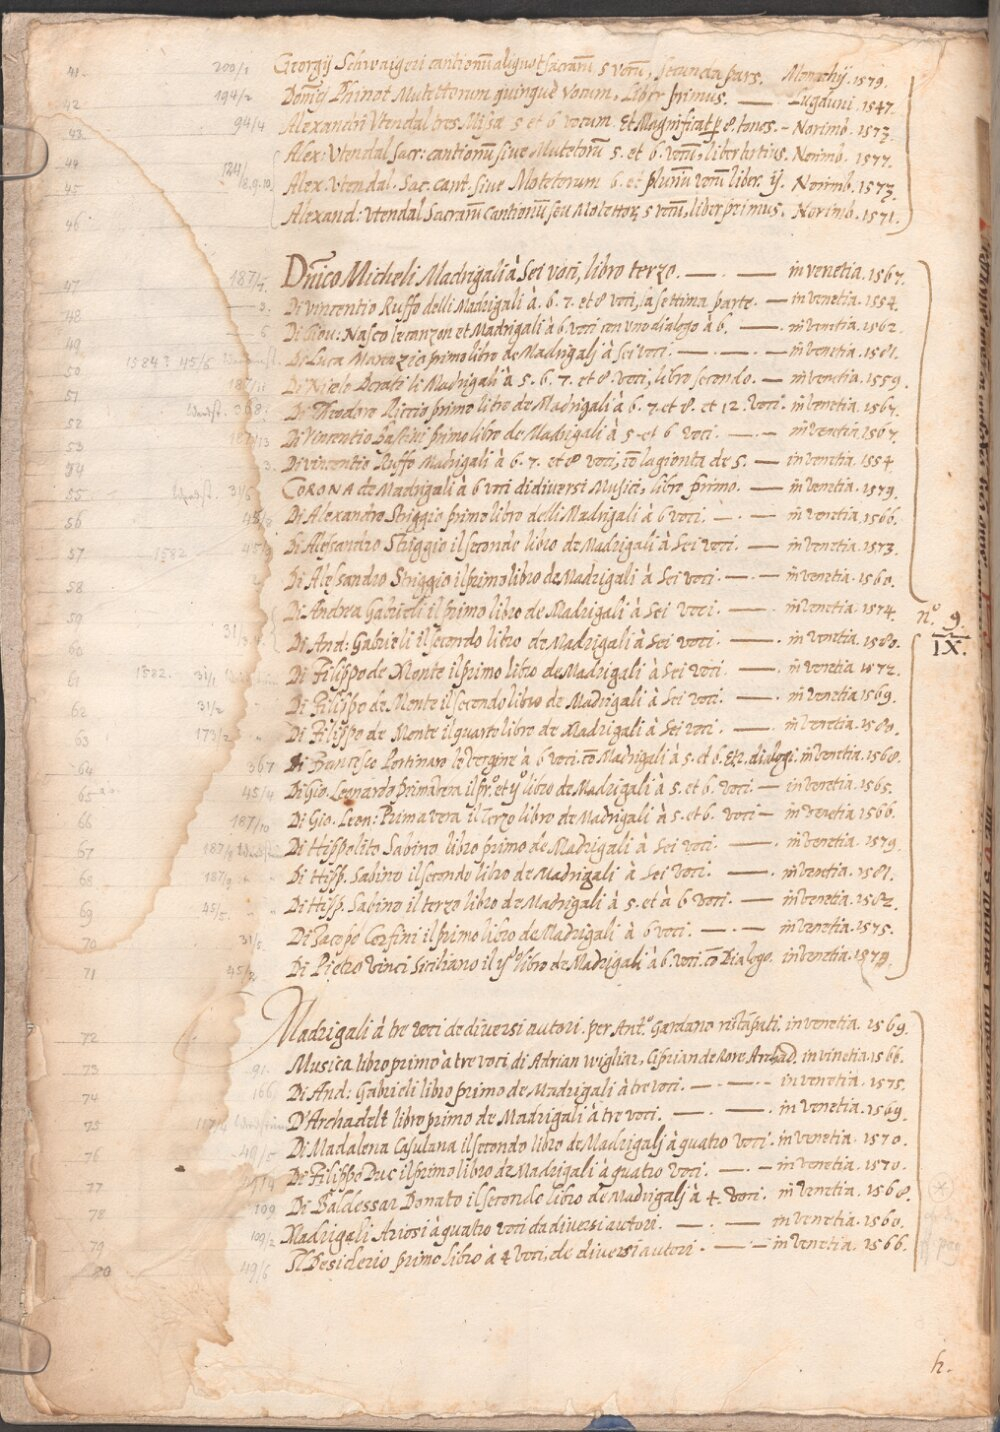 41. 200/1 Georgij Schwaigeri cantionū aliquot sacrarū, 5 votū, secunda pars. Monachij. 1579.
42 194/2 Domīci Phinot Mutettorum quinque vocum, Liber primus. — Lugduni. 1547.
43. 94/4 Alexandri Vtendal tres Missa 5 et 6 vocum Et Magnificat p 8. tonos. - Norimb. 1573.
44 Alex: Vtendal Sacr: cantionū siue Mutetorū 5. et 6. votū, liber tertius. Norimb. 1577.
45 124/8.9.10. Alex. Vtendal. Sac. cant. siue Motetorum 6. et pluriū votū liber. ij. Norimb. 1573.
46 Alexand: Vtendal Sacrarū Cantionū seu Motettor, 5 votū, liber primus. Norimb. 1571.
47 187/5. Dn̄ico Micheli Madrigali à Sei voci, libro terzo. — . — in venetia. 1567.
48 3. Di Vincentio Ruffo delli Madrigali à. 6. 7. et 8 voci, la settima parte. — in venetia. 1554.
49 6. Di Giou: Nasco le canzon et Madrigali à 6 voci con uno dialogo à 6. — in venetia. 1562.
50 1584? 45/6 Di Luca Marenzio primo libro de Madrigalj à sei voci. — . — . — in venetia. 1581.
51 187/11 Di Nicolo Dorati li Madrigali à 5. 6. 7. et 8. voci, libro secondo. — in venetia. 1559.
52 368. Di Theodoro Riccio primo libro de Madrigali à 6. 7. et 8. et 12. voci. in venetia. 1567.
53 187/13 Di Vincentio Bastini primo libro de Madrigali à 5 et 6 voci. — . — in venetia. 1567.
54 3. Di vincentio Ruffo Madrigali à 6. 7. et 8 voci, cō la gionta de 5. — in venetia. 1554.
55 31/5 CORONA de Madrigali à 6 voci di diversi Musici, libro primo. — in venetia. 1579.
56 45/8 Di Alexandro Striggio primo libro delli Madrigali à 6 voci. — . — in venetia. 1566.
57 1582 45/9 Di Alessandro Striggio il secondo libro de Madrigali à Sei voci. — in venetia. 1573.
58 Di Alessandro Striggio il primo libro de Madrigali à Sei voci. — . — in venetia. 1560.
59 Di Andrea Gabrieli il primo libro de Madrigali à Sei voci. — in venetia. 1574.
nº 9.
IX.
60 31/3.4. Di And: Gabrieli il secondo libro de Madrigali à Sei voci. — in venetia. 1580.
61 1582. 31/1 Di Filippo de Monte il primo libro de Madrigali à Sei voci — in venetia 1572.
62 31/2 Di Filippo de Monte il secondo libro de Madrigali à Sei voci. — in venetia 1569.
63 173/2 Di Filippo de Monte il quarto libro de Madrigali à Sei voci. — in venetia. 1580.
64 367 Di Francesco Portinaro le Vergine à 6 voci cō Madrigali à 5. et 6. Et 2. dialogi. in venetia. 1560.
65 45/4 Di Gio. Leonardo primavera il pr̊. et ij̊ libro de Madrigali à 5. et 6. voci. — in venetia. 1565.
66 187/10 Di Gio. Leon: Primavera il terzo libro de Madrigali à 5. et 6. voci — in venetia. 1566.
67 187/8 Di Hippolito Sabino libro primo de Madrigali à Sei voci. — in venetia. 1579.
68 187/9 Di Hipp. Sabino il secondo libro de Madrigali à Sei voci. — in venetia. 1581.
69 45/5. Di Hipp. Sabino il terzo libro de Madrigali à 5. et à 6 voci. — in venetia. 1582.
70 31/8. Di Jacopo Corfini il primo libro de Madrigali à 6 voci. — . — in venetia. 1575.
71 45/2 Di Pietro Vinci Siciliano il ij̊ libro de Madrigali à 6. voci. cō Dialogo. in venetia. 1579.
72 Madrigali à tre voci de diversi autori. per Ant.º Gardano ristāpati. in venetia. 1569.
73 91. Musica libro primo à tre voci di Adrian wigliar, Ciprian de Rore Archad. in vinetia. 1566.
74 166 Di And: Gabrieli libro primo de Madrigali à tre voci. — . — . — in venetia. 1575.
75 D'Archadelt libro primo de Madrigali à tre voci. — . — in venetia. 1569.
76 49/5 Di Madalena Casulana il secondo libro de Madrigalj à quatro voci. in venetia. 1570.
77 Di Filippo Duc il primo libro de Madrigali à quatro voci. — . — in venetia. 1570.
78 109 Di Baldessar Donato il secondo libro de Madrigalj à 4. voci. in venetia. 1568.
79 109/2 Madrigali Ariosi à quatro voci da diversi autori. — . — in venetia. 1560.
80 49/6 Il Desiderio primo libro à 4 voci, de diversi autori. — — in venetia. 1566.
h.